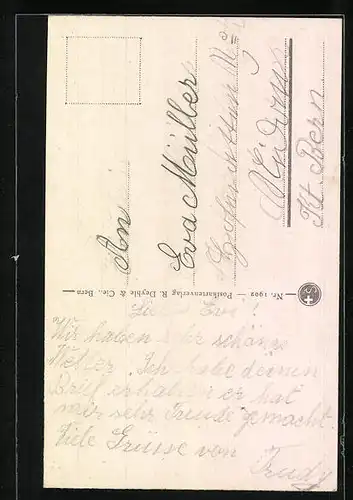 Liebe Eva!
Wir haben sehr schönes
Wetter. Ich habe deinen
Brief erhalten er hat
mir sehr Freude gemacht.
Viele Grüsse von
Trudy
Nr. 1902 — Postkartenverlag R. Deyhle & Cie., Bern
An
Eva Müller
Kt. Bern